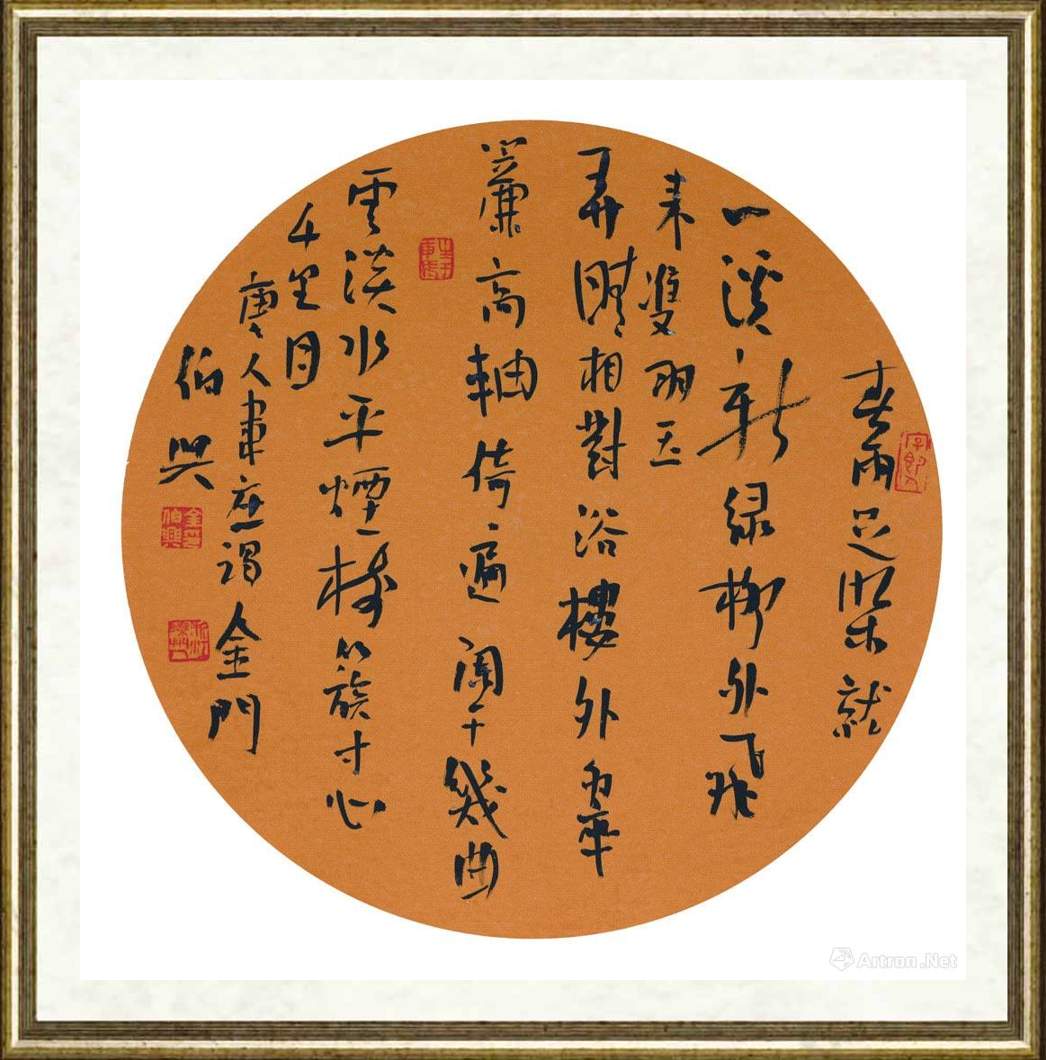 春雨足染就
一溪新绿柳外飛
来雙羽玉
弄晴相對浴樓外翠
簾高軸倚遍闌干幾曲
雲淡水平煙树簇寸心
千里目
唐人韋庄謁金門
伯興
Artron.Net